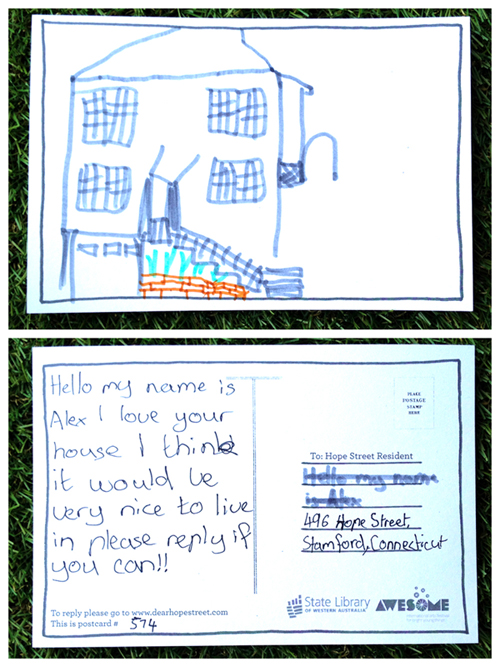 Hello my name is
Alex I love your
house I think
it would be
very nice to live
in please reply if
you can!!
To reply please go to www.dearhopestreet.com
This is postcard # 574
PLACE
POSTAGE
STAMP
HERE
To: Hope Street Resident
Hello my name
is Alex
496 Hope Street,
Stamford, Connecticut
State Library
OF WESTERN AUSTRALIA
AWESOME